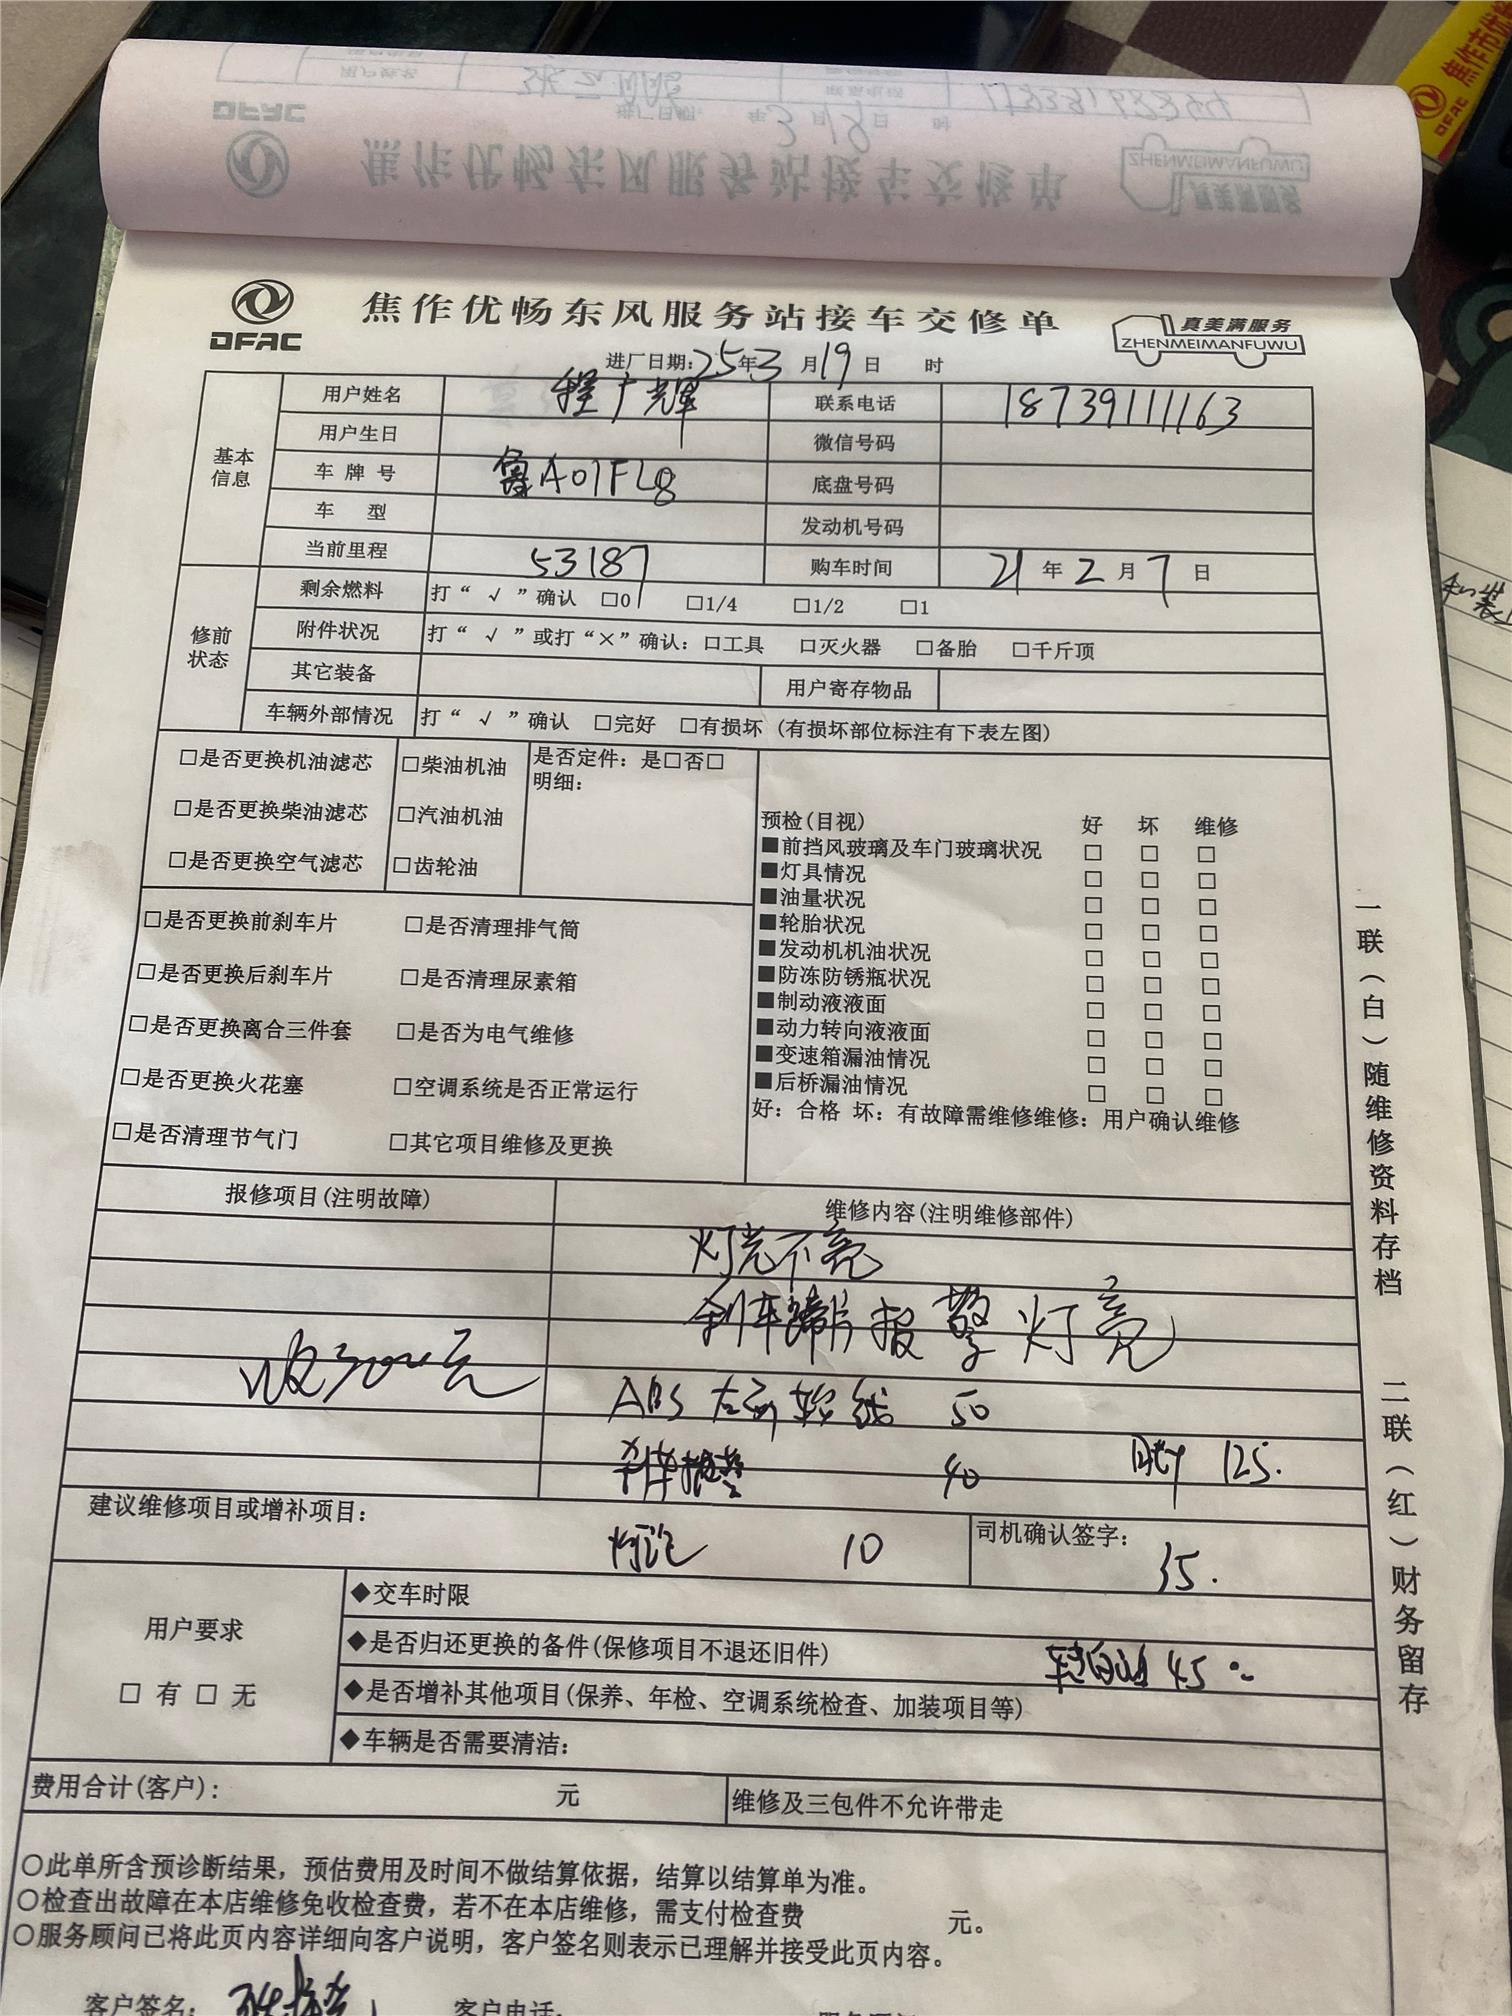 DFAC
焦作优畅东风服务站接车交修单
真美满服务
ZHENMEIMANFUWU
进厂日期:25年3月19日 时
基本信息
用户姓名 程广辉 联系电话 18739111163
用户生日 微信号码
车牌号 鲁A01FL8 底盘号码
车 型 发动机号码
当前里程 53187 购车时间 21年2月7日
修前状态
剩余燃料 打“√”确认 □0 □1/4 □1/2 □1
附件状况 打“√”或打“×”确认:□工具 □灭火器 □备胎 □千斤顶
其它装备 用户寄存物品
车辆外部情况 打“√”确认 □完好 □有损坏 (有损坏部位标注有下表左图)
□是否更换机油滤芯 □柴油机油
□是否更换柴油滤芯 □汽油机油
□是否更换空气滤芯 □齿轮油
是否定件:是□否□
明细:
□是否更换前刹车片 □是否清理排气筒
□是否更换后刹车片 □是否清理尿素箱
□是否更换离合三件套 □是否为电气维修
□是否更换火花塞 □空调系统是否正常运行
□是否清理节气门 □其它项目维修及更换
预检(目视) 好 坏 维修
■前挡风玻璃及车门玻璃状况 □ □ □
■灯具情况 □ □ □
■油量状况 □ □ □
■轮胎状况 □ □ □
■发动机机油状况 □ □ □
■防冻防锈瓶状况 □ □ □
■制动液液面 □ □ □
■动力转向液液面 □ □ □
■变速箱漏油情况 □ □ □
■后桥漏油情况 □ □ □
好:合格 坏:有故障需维修维修:用户确认维修
报修项目(注明故障) 维修内容(注明维修部件)
灯光不亮
刹车蹄片报警灯亮
收300元
ABS 左前轮线 50
刹车报警 40 125.
建议维修项目或增补项目:
灯泡 10
司机确认签字:
35.
用户要求
□ 有 □ 无
◆交车时限
◆是否归还更换的备件(保修项目不退还旧件)
45
◆是否增补其他项目(保养、年检、空调系统检查、加装项目等)
◆车辆是否需要清洁:
费用合计(客户): 元 维修及三包件不允许带走
○此单所含预诊断结果,预估费用及时间不做结算依据,结算以结算单为准。
○检查出故障在本店维修免收检查费,若不在本店维修,需支付检查费 元。
○服务顾问已将此页内容详细向客户说明,客户签名则表示已理解并接受此页内容。
客户签名: 客户电话:
一联(白)随维修资料存档 二联(红)财务留存